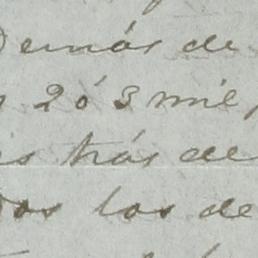 Demás de
2 ó 3 mil,
trás de
los de